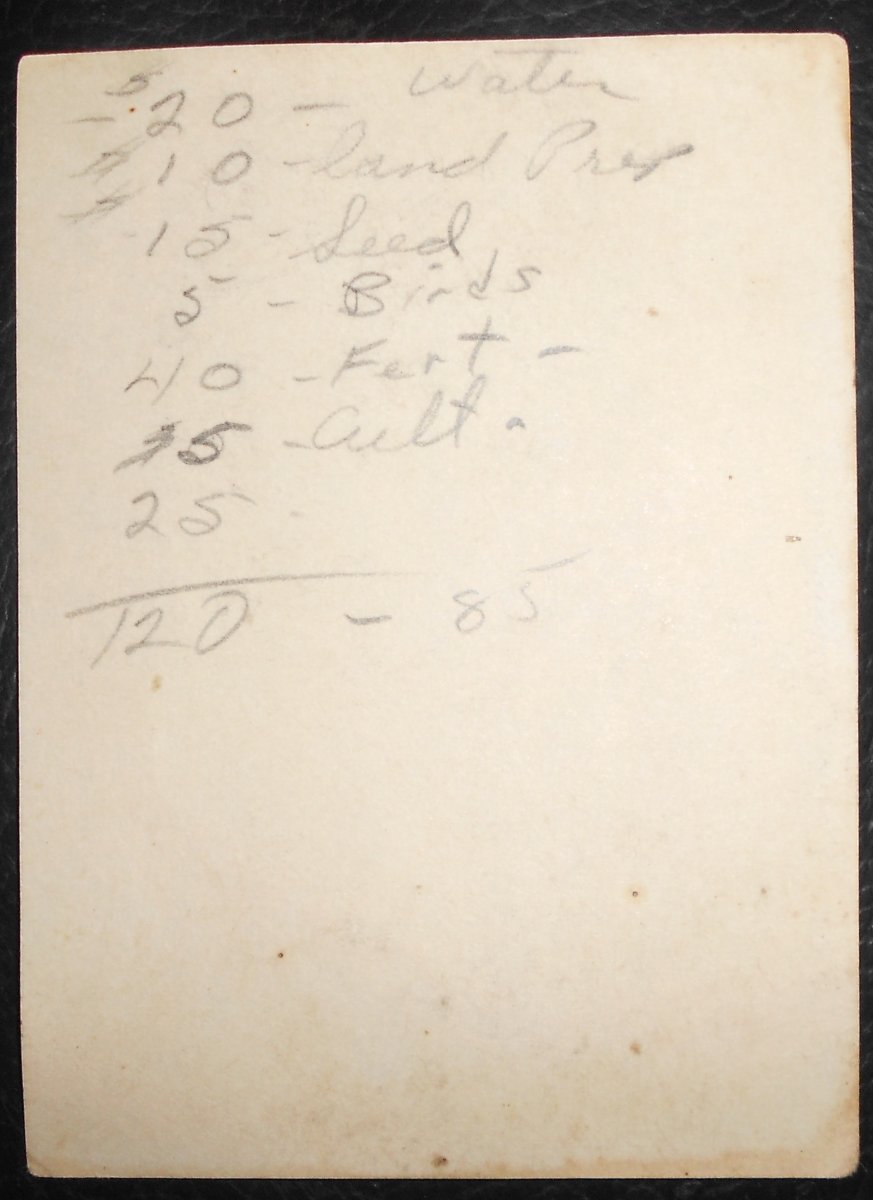 5
- 20 - Water
10 - land Prep
15 - Seed
5 - Birds
40 - Fert -
5 - Cult.
25 -
120 - 85